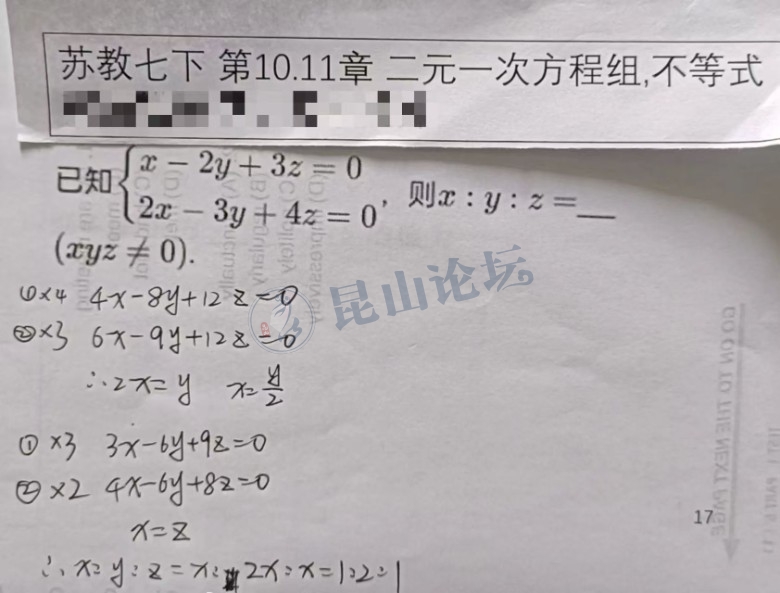 苏教七下 第10.11章 二元一次方程组,不等式
已知{x − 2y + 3z = 0
2x − 3y + 4z = 0, 则x : y : z =__
(xyz ≠ 0).
①×4 4x-8y+12z=0
②×3 6x-9y+12z=0
∴2x=y x=y/2
①×3 3x-6y+9z=0
②×2 4x-6y+8z=0
x=z
∴x:y:z=x:2x:x=1:2:1
17
昆山论坛
GO ON TO THE NEXT PAGE